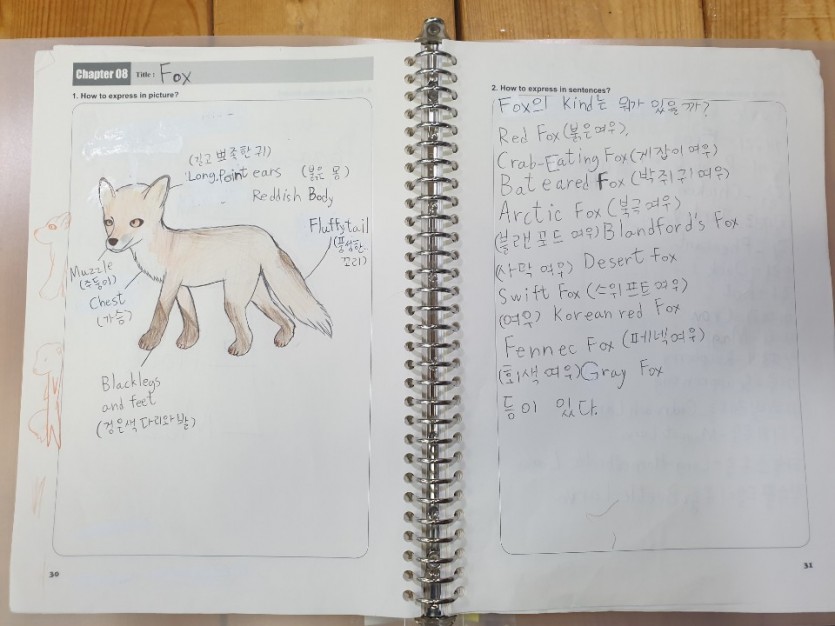 Chapter 08 Title : Fox
1. How to express in picture?
(길고 뾰족한 귀)
Long, point ears (붉은 몸)
Reddish Body
Fluffy tail
(풍성한
꼬리)
Muzzle
(주둥이)
Chest
(가슴)
Black legs
and feet
(검은색 다리와 발)
30
2. How to express in sentences?
Fox의 kind는 뭐가 있을까?
Red Fox (붉은여우),
Crab-Eating Fox (게잡이여우)
Bat eared Fox (박쥐귀여우)
Arctic Fox (북극여우)
(블랜포드 여우) Blandford's Fox
(사막 여우) Desert fox
Swift Fox (스위프트여우)
(여우) Korean red Fox
Fennec Fox (페넥여우)
(회색여우) Gray Fox
등이 있다.
31